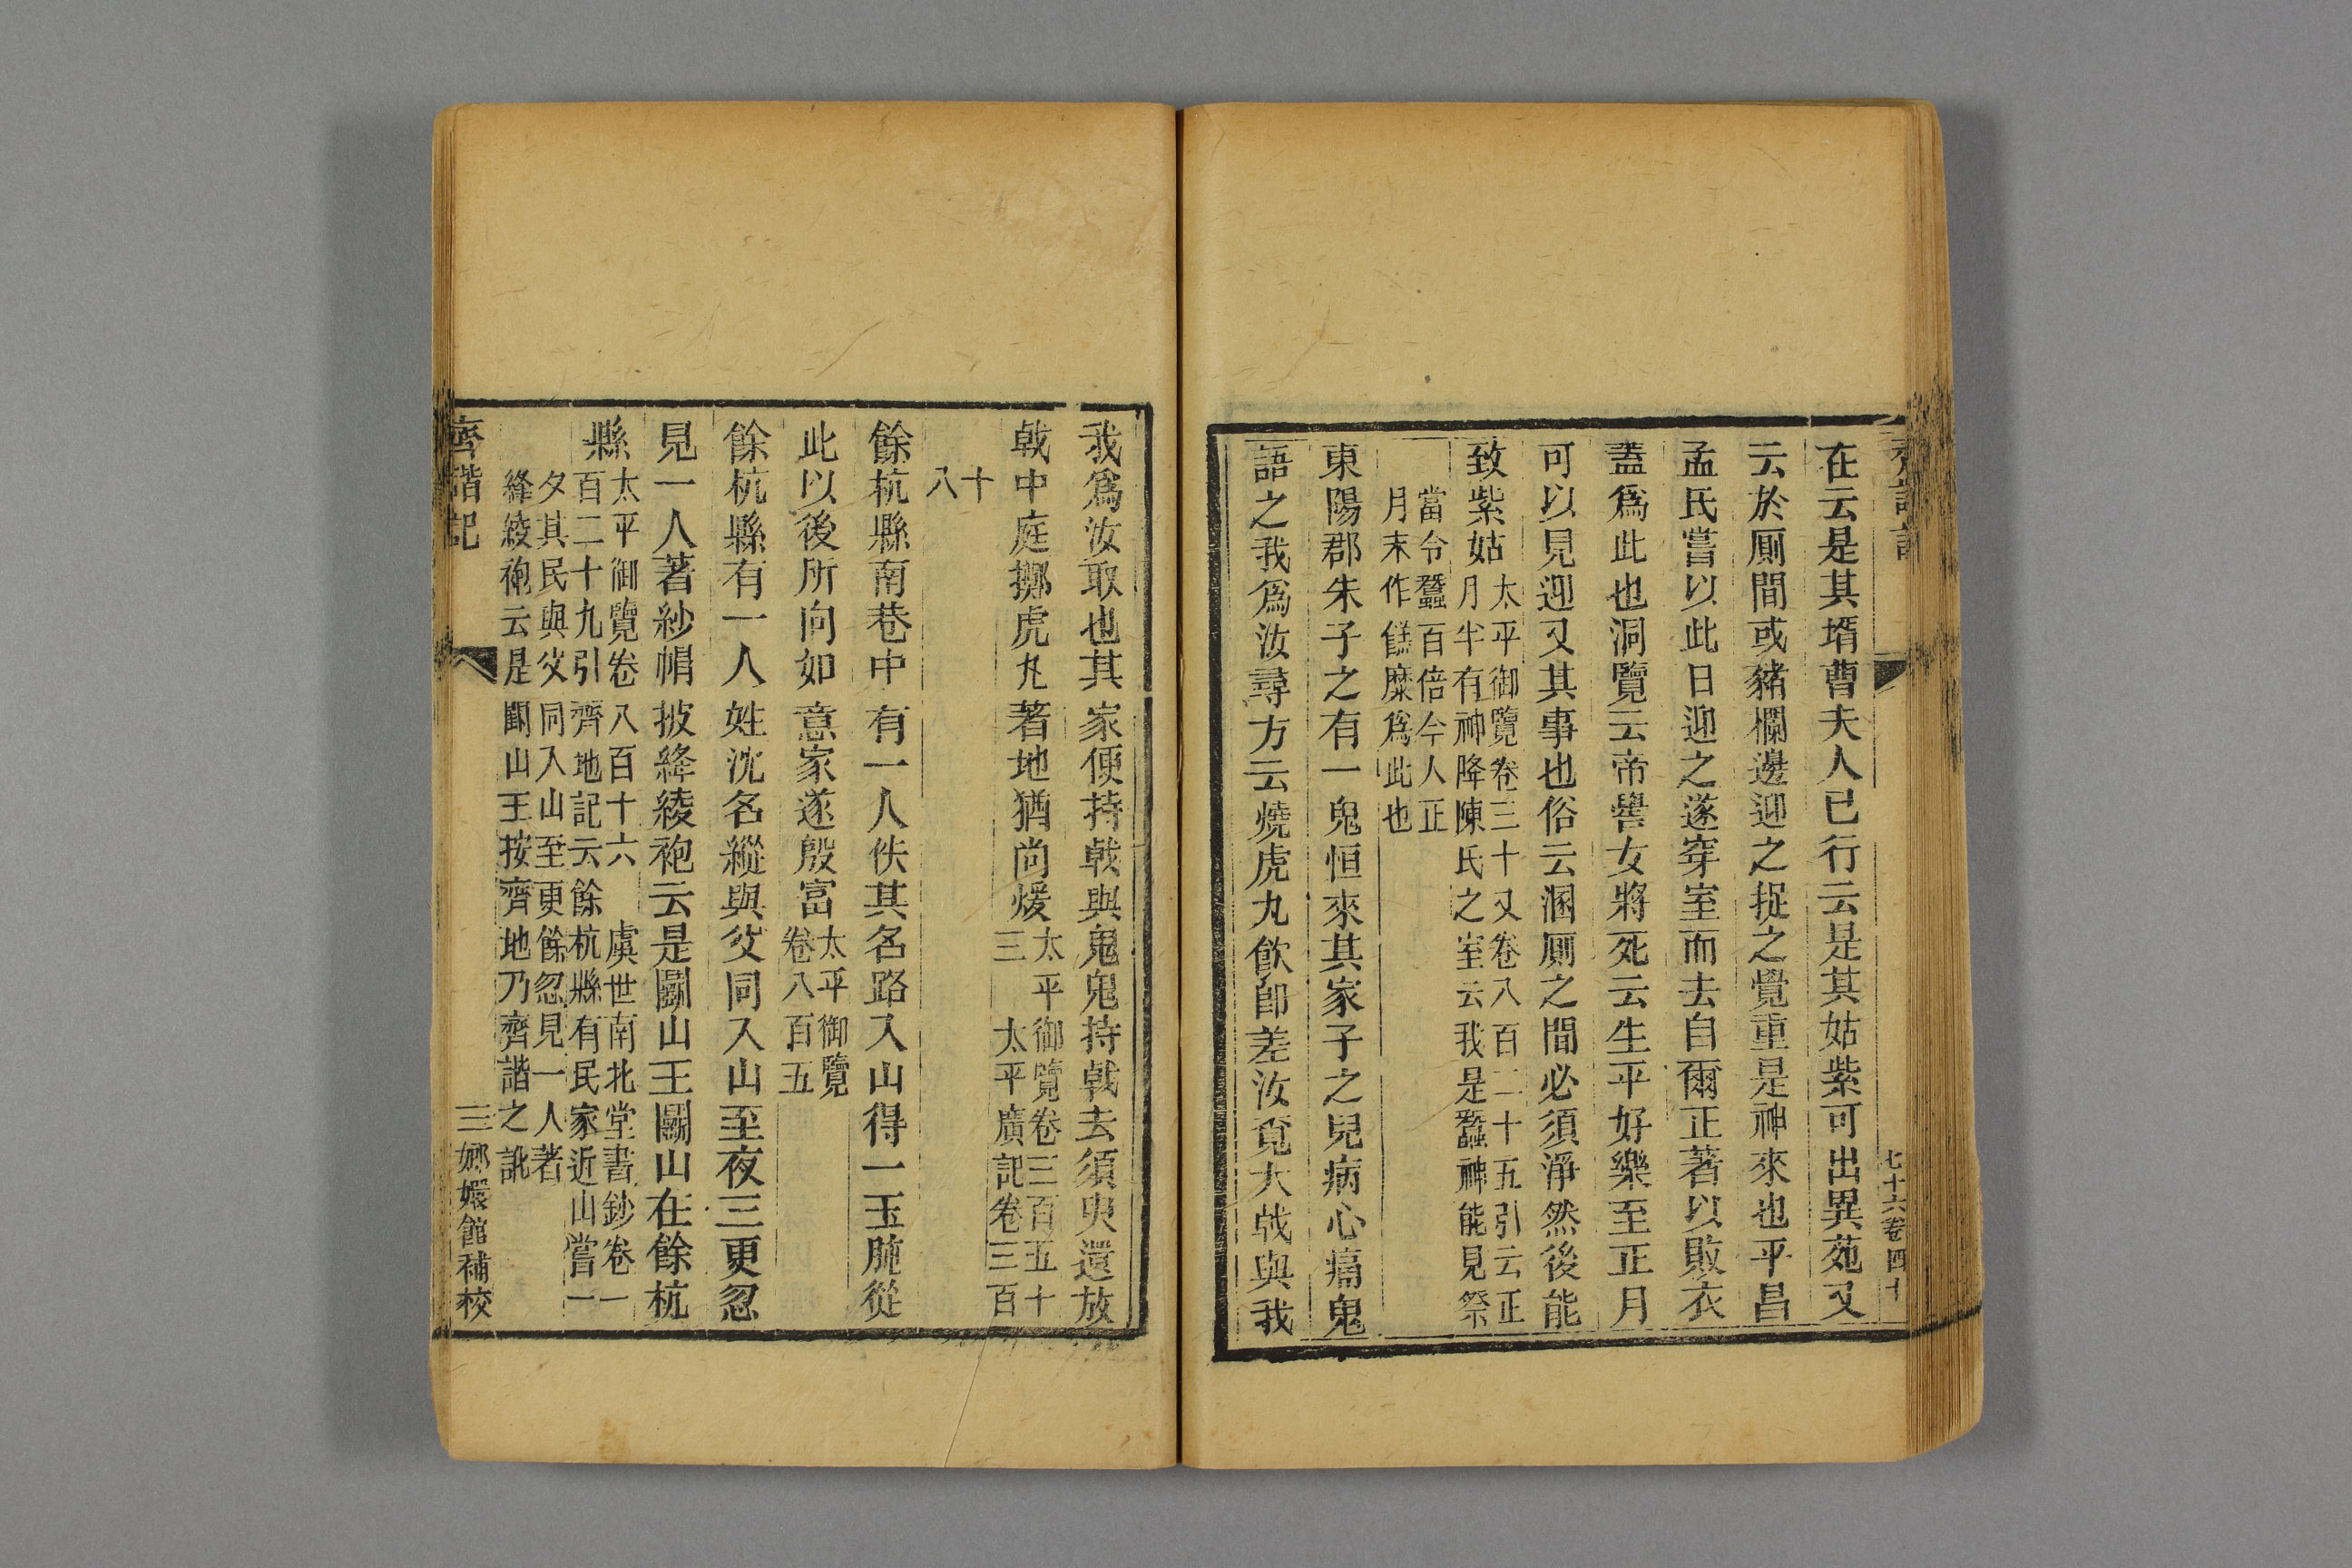 在云是其壻曹夫人已行云是其姑紫可出異苑又
云於厠間或豬欄邊迎之捉之覺重是神來也平昌
孟氏嘗以此日迎之遂穿室而去自爾正著以敗衣
蓋爲此也洞覽云帝嚳女將死云生平好樂至正月
可以見迎又其事也俗云溷厠之間必須淨然後能
致紫姑
太平御覽卷三十又卷八百二十五引云正
月半有神降陳氏之室云我是蠶神能見祭
當令蠶百倍今人正
月末作餻糜爲此也
東陽郡朱子之有一鬼恒來其家子之兒病心痛鬼
語之我爲汝尋方云燒虎丸飲卽差汝覓大戟與我
七十六卷四十
我爲汝取也其家便持戟與鬼鬼持戟去須臾還放
戟中庭擲虎丸著地猶尚煖
太平御覽卷三百五十
三 太平廣記卷三百
十
八
餘杭縣南巷中有一人佚其名路入山得一玉䏶從
此以後所向如意家遂殷富
太平御覽
卷八百五
餘杭縣有一人姓沈名縱與父同入山至夜三更忽
見一人著紗帽披絳綾袍云是鬬山王鬬山在餘杭
縣
太平御覽卷八百十六 虞世南北堂書鈔卷一
百二十九引齊地記云餘杭縣有民家近山嘗一
夕其民與父同入山至更餘忽見一人著
絳綾袍云是鬬山王按齊地乃齊諧之訛
齊諧記
三
嫏嬛館補校